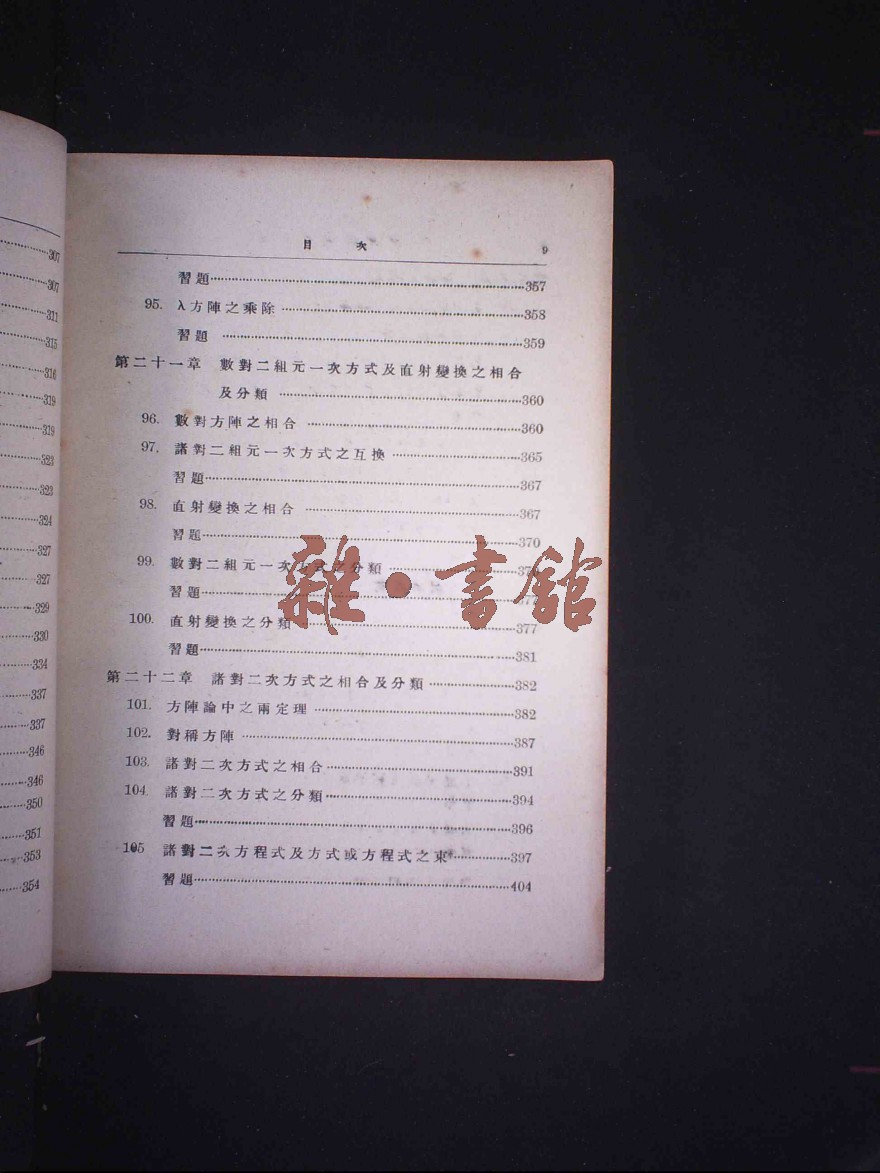 307
307
311
315
316
319
319
323
323
324
327
327
329
330
334
337
337
346
346
350
351
353
354
目 次 9
習題……357
95. λ方陣之乘除……358
習題……359
第二十一章 數對二組元一次方式及直射變換之相合
及分類……360
96. 數對方陣之相合……360
97. 諸對二組元一次方式之互換……365
習題……367
98. 直射變換之相合……367
習題……370
99. 數對二組元一次方式之分類……
習題……
100. 直射變換之分類……377
習題……381
第二十二章 諸對二次方式之相合及分類……382
101. 方陣論中之兩定理……382
102. 對稱方陣……387
103. 諸對二次方式之相合……391
104. 諸對二次方式之分類……394
習題……396
105 諸對二次方程式及方式或方程式之束……397
習題……404
雜·書館